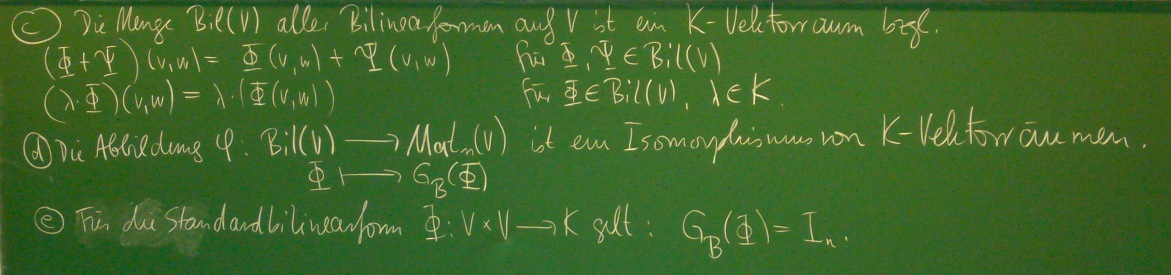 ⓒ Die Menge Bil(V) aller Bilinearformen auf V ist ein K-Vektorraum bzgl.
(Φ+Ψ)(v,w) = Φ(v,w) + Ψ(v,w) für Φ,Ψ ∈ Bil(V)
(λ·Φ)(v,w) = λ·(Φ(v,w)) für Φ ∈ Bil(V), λ ∈ K.
ⓓ Die Abbildung φ: Bil(V) ⟶ Mat_n(V) ist ein Isomorphismus von K-Vektorräumen.
Φ ⟼ G_B(Φ)
ⓔ Für die Standardbilinearform Φ: V × V ⟶ K gilt: G_B(Φ) = I_n.